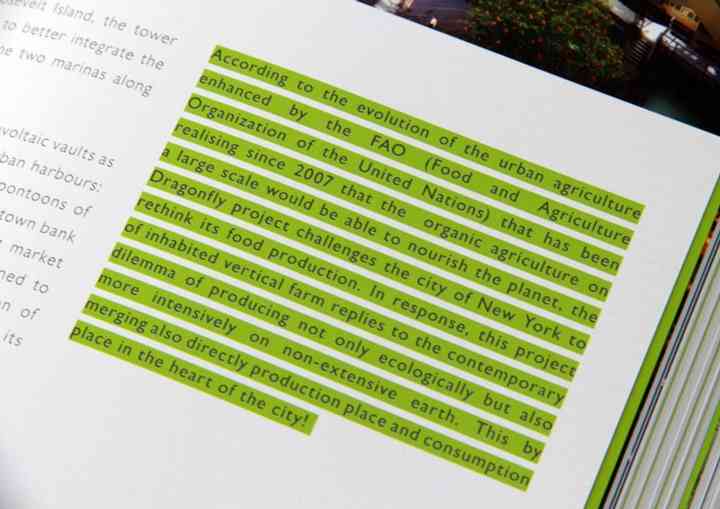 Island, the tower
to better integrate the
two marinas along
voltaic vaults as
ban harbours:
pontoons of
town bank
market
ned to
n of
its
According to the evolution of the urban agriculture
enhanced by the FAO (Food and Agriculture
Organization of the United Nations) that has been
realising since 2007 that the organic agriculture on
a large scale would be able to nourish the planet, the
Dragonfly project challenges the city of New York to
rethink its food production. In response, this project
of inhabited vertical farm replies to the contemporary
dilemma of producing not only ecologically but also
more intensively on non-extensive earth. This by
merging also directly production place and consumption
place in the heart of the city!